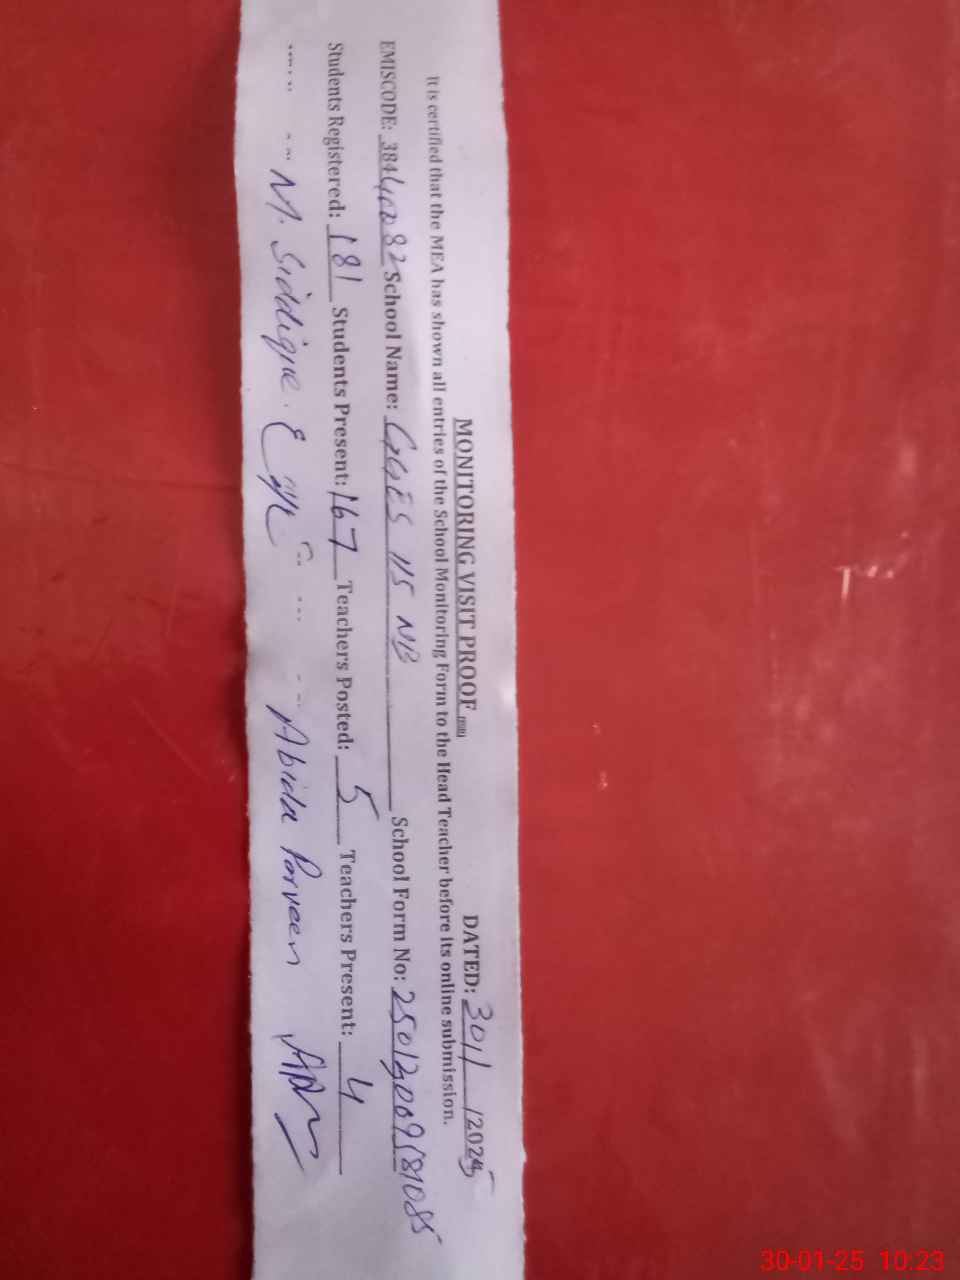 MONITORING VISIT PROOF DATED: 30/1/2025
It is certified that the MEA has shown all entries of the School Monitoring Form to the Head Teacher before its online submission.
EMISCODE: 38440082 School Name: GGES 115 NB School Form No: 25013009181085
Students Registered: 181 Students Present: 167 Teachers Posted: 5 Teachers Present: 4
M. Siddique Abida Parveen
30-01-25 10:23